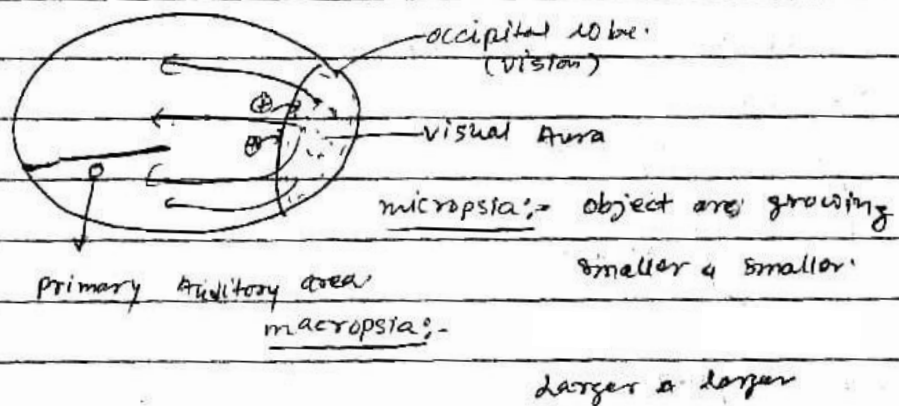 occipital lobe.
(vision)
⊕
⊕
visual Aura
micropsia:- object are growing
smaller & smaller.
primary Auditory area
macropsia:-
Larger & larger